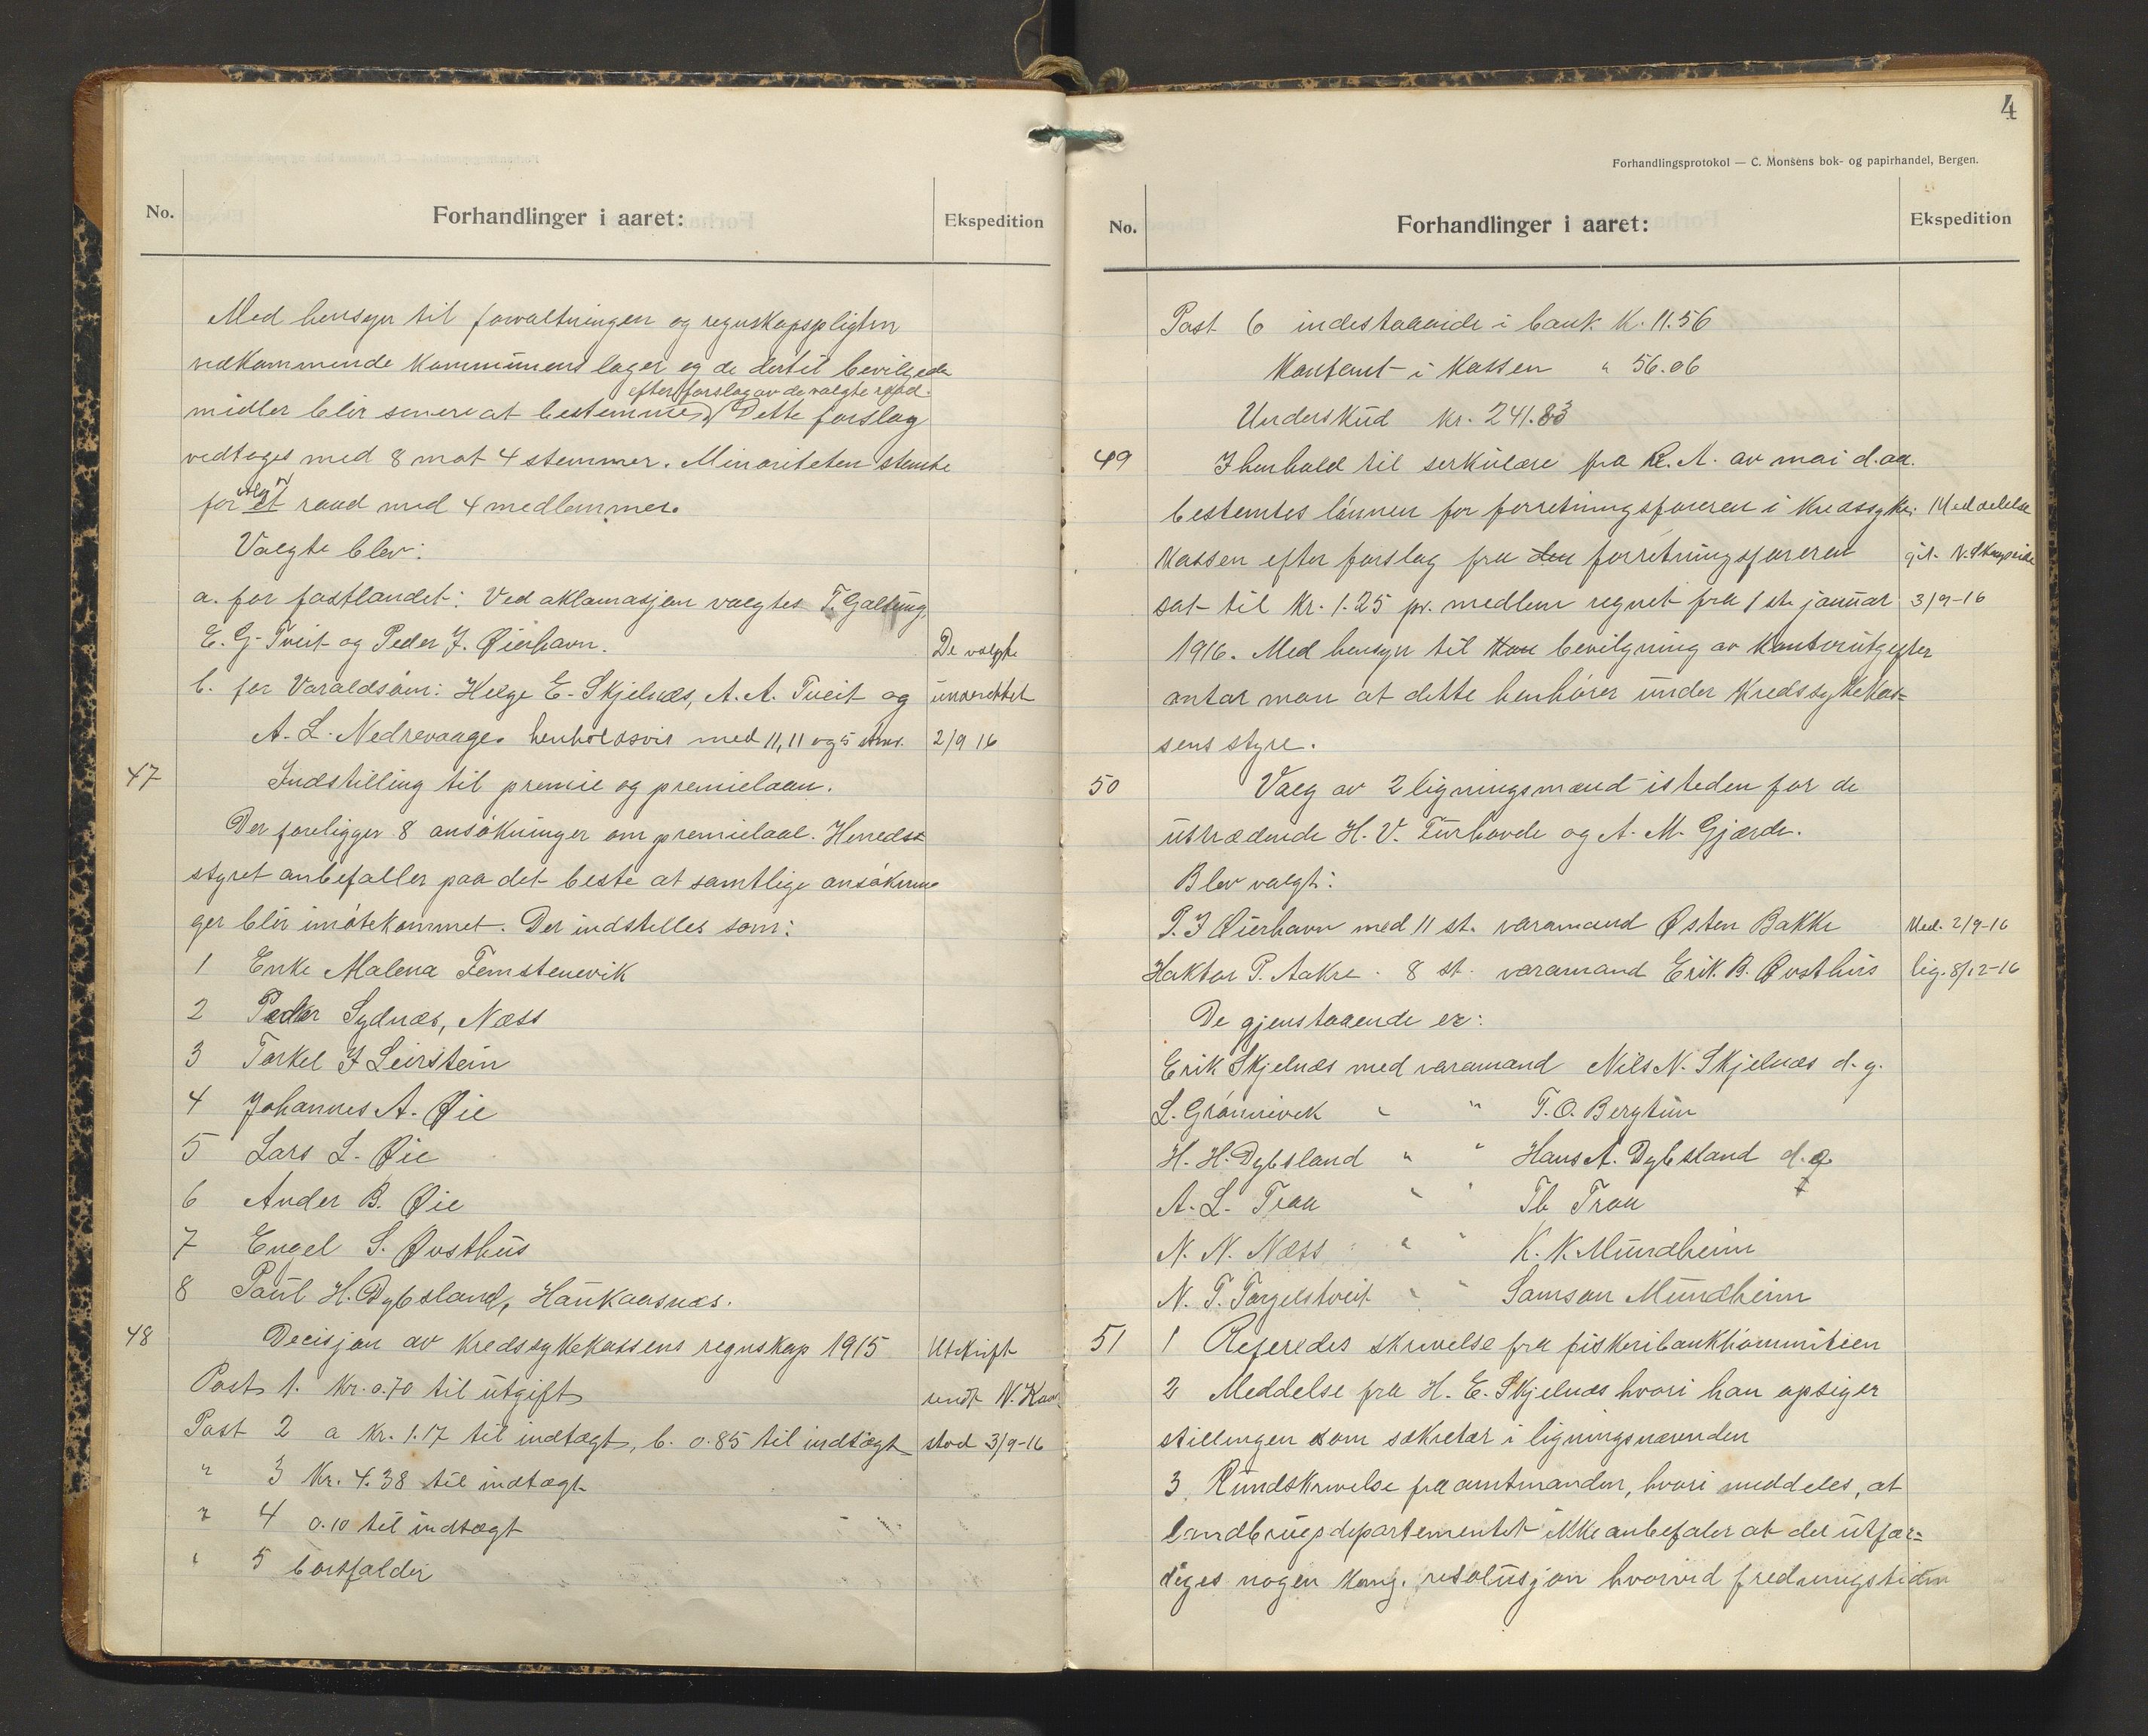 No.
Forhandlinger i aaret:
Ekspedition
Med hensyn til forvaltningen og regnskapspligten
vedkommende kommunens lager og de dertil bevilgede
efter forslag av de valgte raad.
midler blir senere at bestemme. Dette forslag
vedtoges med 8 mot 4 stemmer. Minoriteten stemte
valg av
for et raad med 4 medlemmer.
Valgte blev:
a. for fastlandet: Ved aklamasjon valgtes T. Galtung,
E. G. Tveit og Peder J. Øierhavn.
De valgte
b. for Varaldsøen: Helge E. Skjelnæs, A. A. Tveit og
underrettet
A. L. Nedrevaage. henholdsvis med 11, 11 og 5 stmr.
2/9 16
47
Indstilling til premie og premielaan.
Der foreligger 8 ansøkninger om premielaal. Herreds=
styret anbefaller paa det beste at samtlige ansøknin=
ger blir imøtekommet. Der indstilles som:
1 Enke Malena Femstenevik
2 Peder Sydnæs, Næss
3 Torkel J Leirstein
4 Johannes A. Øie
5 Lars L. Øie
6 Ander B. Øie
7 Engel S. Øvsthus
8 Paul H. Dybsland, Haukaasnæs.
48
Decisjon av kredssykekassens regnskap 1915
Utskrift
Post 1. kr. 0.70 til utgift
sendt N. Kaar
Post 2 a kr. 1.17 til indtægt, b. 0.85 til indtægt
stad 3/9-16
" 3 kr. 4.38 til indtægt
" 4 0.10 til indtægt
" 5 bortfalder
4
Forhandlingsprotokol — C. Monsens bok- og papirhandel, Bergen.
No.
Forhandlinger i aaret:
Ekspedition
Post 6 indestaaende i bank K. 11.56
Kontant i kassen " 56.06
Underskud kr. 241.83
49
I henhold til serkulære fra R. A. av mai d. aa.
bestemtes lønnen for forretningsføreren i kredssyke:
Meddelelse
kassen efter forslag fra den forretningsføreren
git.
sat til kr. 1.25 pr. medlem regnet fra 1ste januar
3/9-16
1916. Med hensyn til bevilgning av kontorutgifter
antar man at dette henhører under kredssykekas=
sens styre.
50
Valg av 2 ligningsmænd isteden for de
utrædende H. V. Turhovde og A. M. Gjærde.
Blev valgt:
P. J Øierhavn med 11 st. varamand Østen Bakke
Med. 2/9-16
Haktor P. Aakre - 8 st. varamand Erik B. Øvsthus
lig. 8/12-16
De gjenstaaende er:
Erik Skjelnæs med varamand Nils N. Skjelnæs d. y.
L. Grønnevik " " T. O. Bergtun
H. H. Dybsland " " Hans A. Dybsland d. e
A. L. Traa " " Tb Traa
N. N. Næss " " K. N. Mundheim
N. T. Torgelstveit " " Samson Mundheim
51
1 Referedes skrivelse fra fiskeribankkommiteen
2 Meddelse fra H. E. Skjelnæs hvori han opsiger
stillingen som sekretær i ligningsnævnden
3 Rundskrivelse fra amtmanden, hvori meddeles, at
landbrugsdepartementet ikke anbefaler at der utfær=
diges nogen kong. resolusjon hvorved fredningstiden